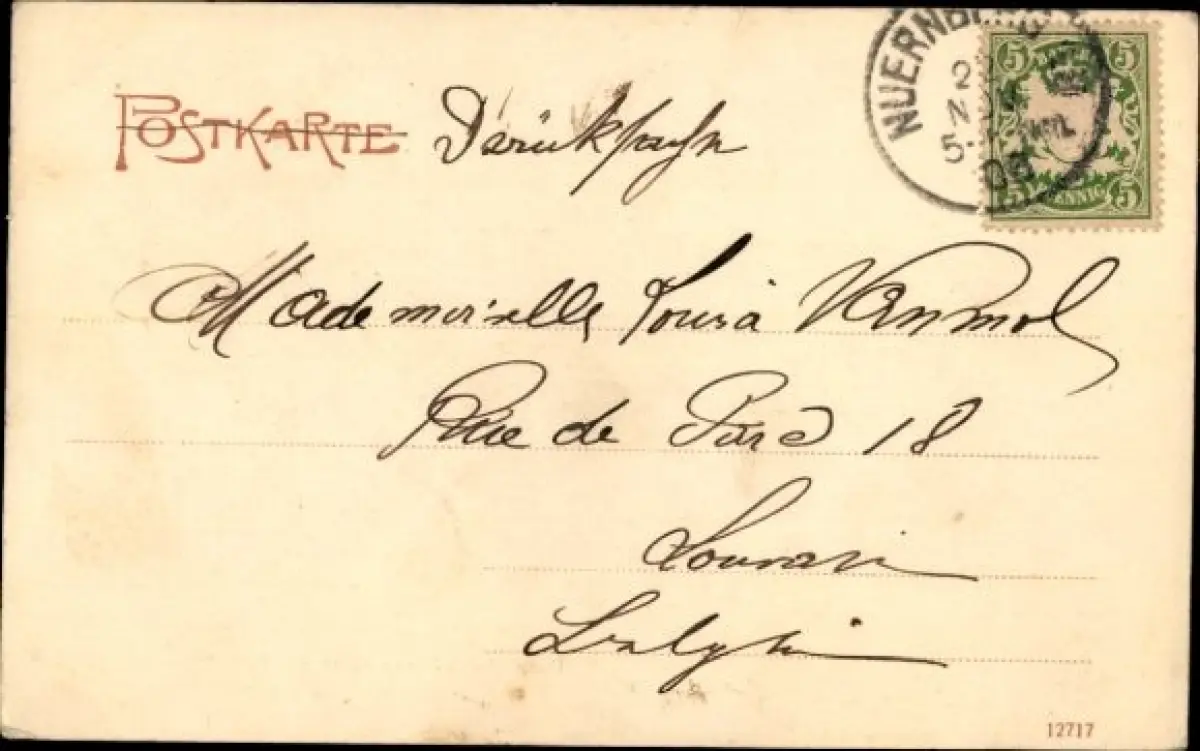 POSTKARTE Drucksache
NUERNBERG
5 5
2 N
5
03
5 PFENNIG 5
Mademoiselle Louisa Vanmol
Rue de Paris 18
Louvain
Belgie
12717